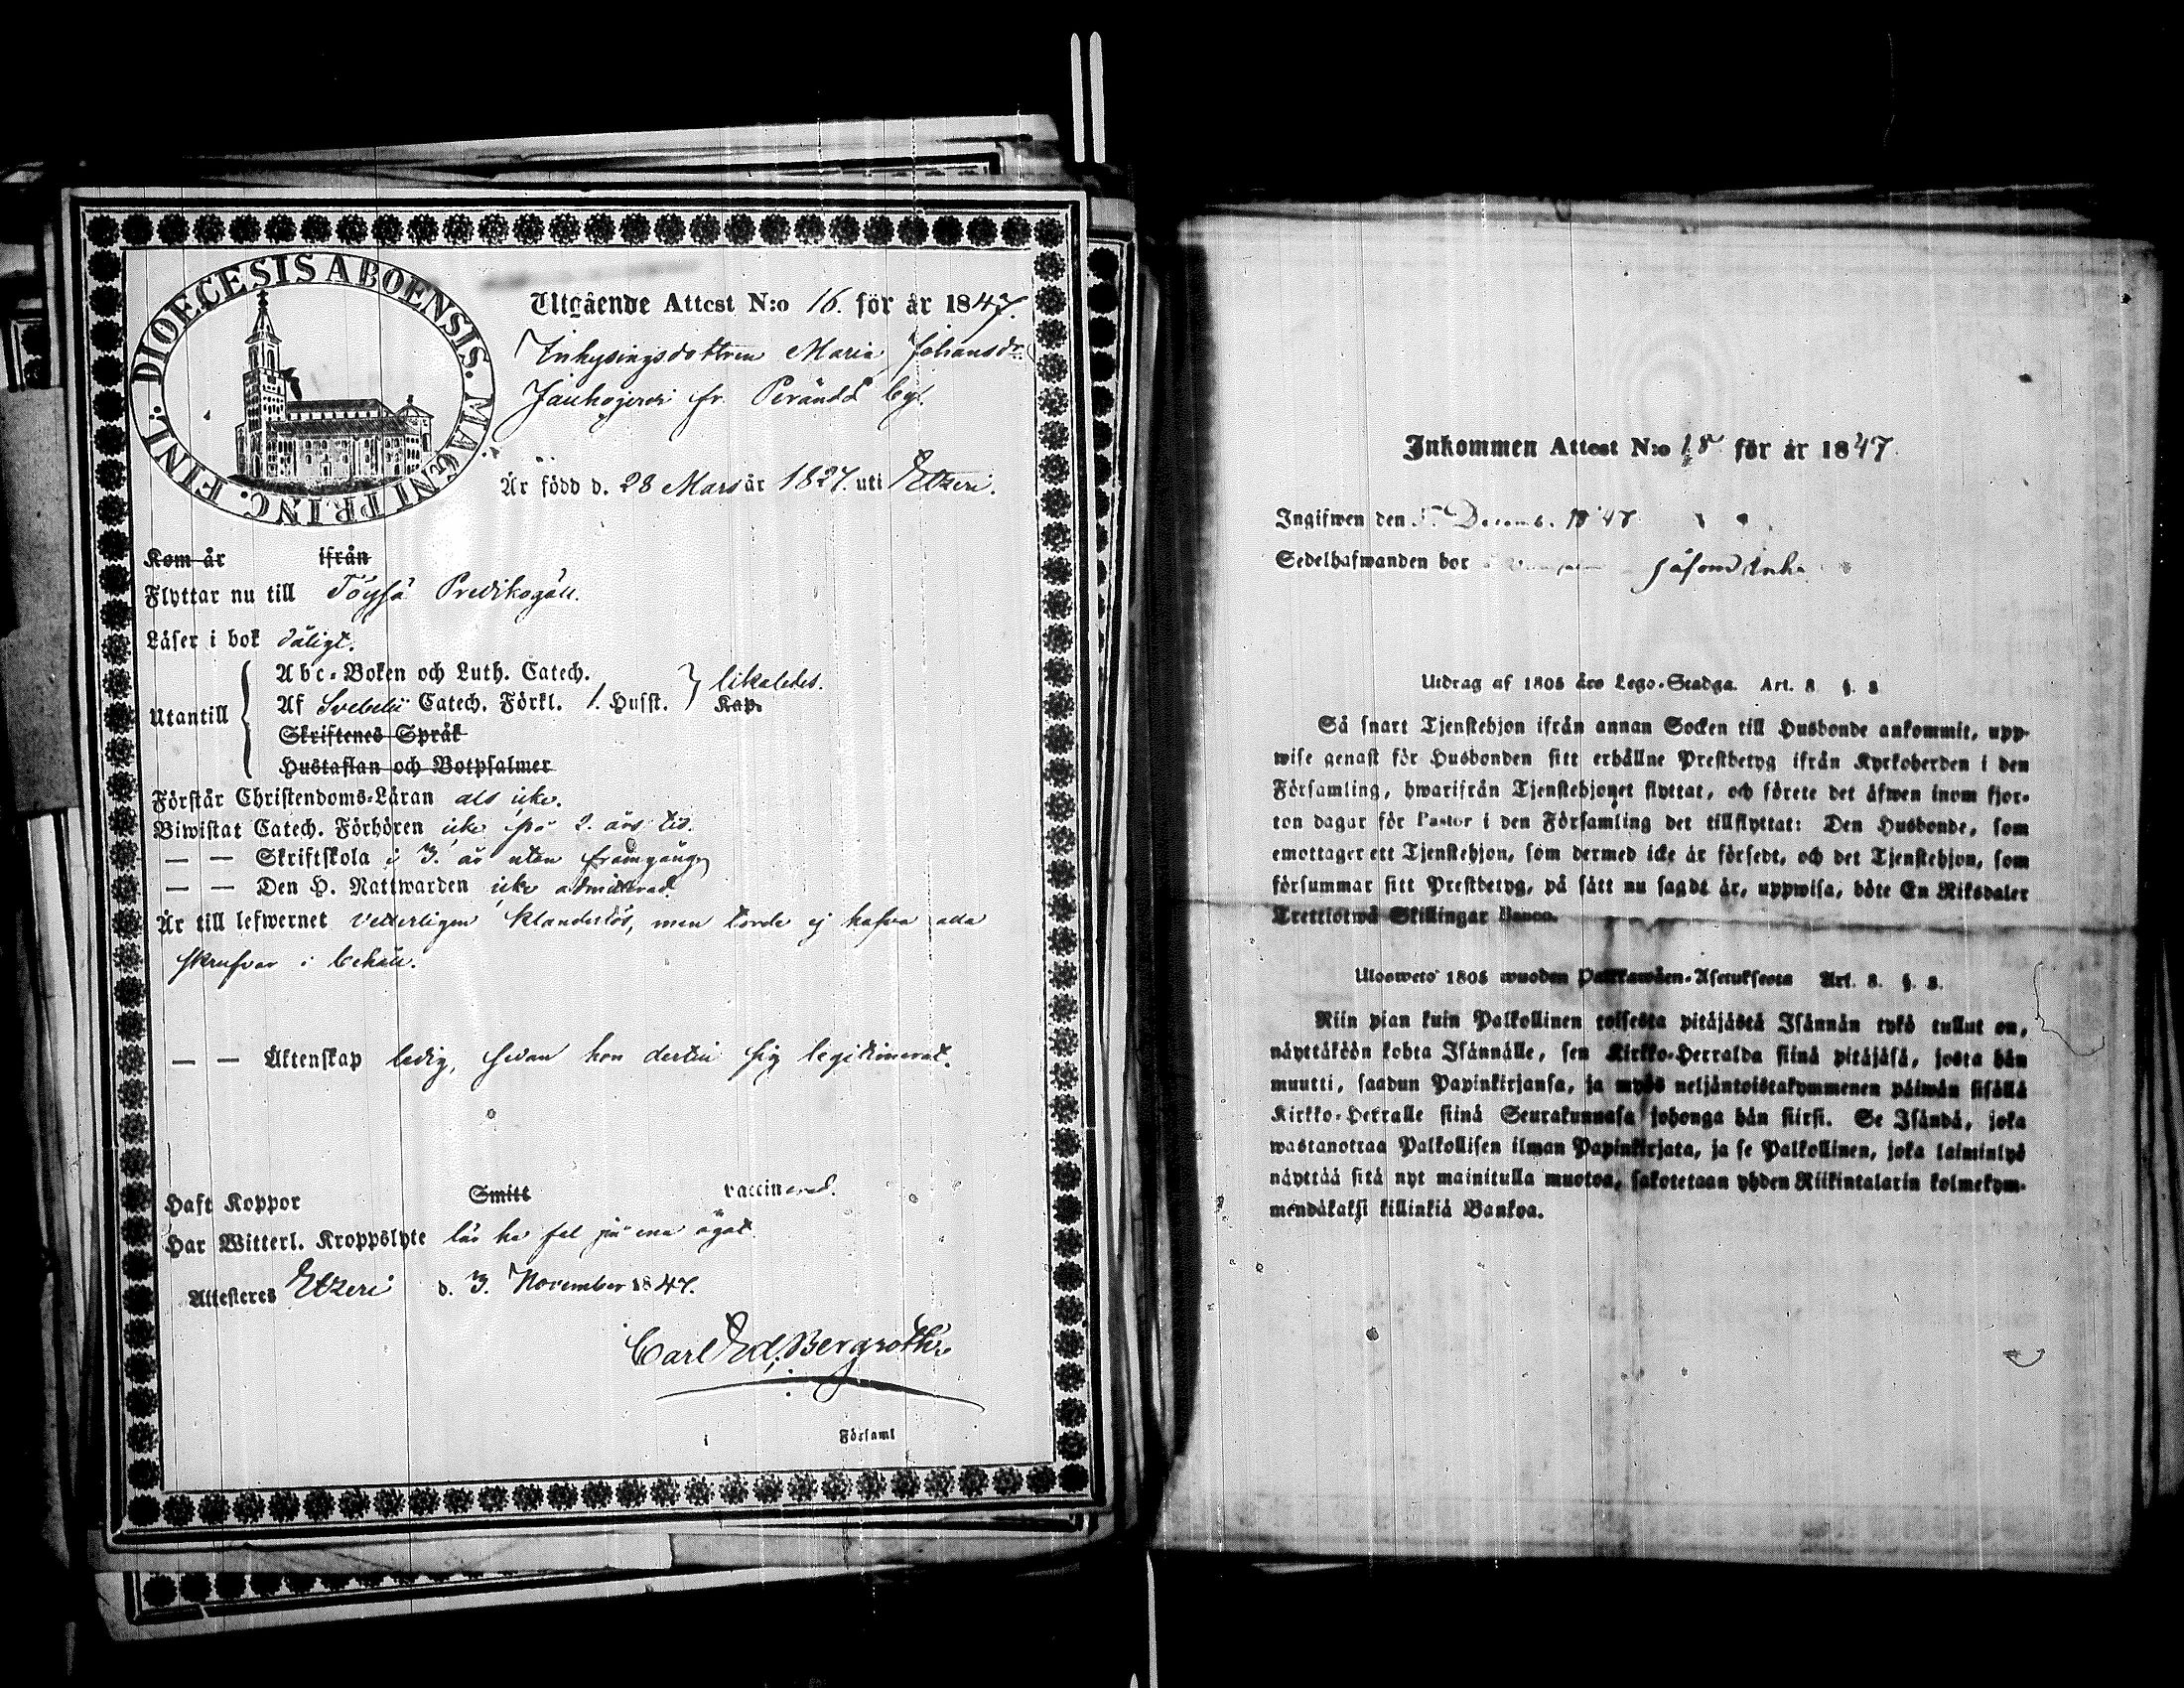 DIOECESIS ABOENSIS. MAGNI PRINC. FINL.
Utgående Attest N:o 16. för år 1847.
Inhysingsdottren Maria Johansdr
fr. Perändd by.
Är född d. 28 Mars år 1827. uti Etzeri.
Kom år ifrån
Flyttar nu till Töysä Predikogäll.
Läser i bok dåligt.
Utantill
Abc-Boken och Luth. Catech.
Af Svebelii Catech. Förkl. 1. Husst. Kap.
likaledes.
Skriftenes Språk
Hustaflan och Botpsalmer
Förstår Christendoms-Läran als icke.
Biwistat Catech. Förhören icke på 2. års tid.
— — Skriftskola i 3. år utan framgång
— — Den H. Nattwarden icke admitterad
Är till lefwernet vetterligen klanderlös, men torde ej hafva alla
skrufvar i behåll.
— — Äktenskap ledig, sedan hon dertill sig legitimerat.
Haft Koppor Smitt vaccinerad.
Har Witterl. Kroppslyte lär ha fel på ena ögat.
Attesteres Etzeri d. 3. November 1847.
Carl Ed. Bergroth
i Församl
Inkommen Attest N:o 18 för år 1847.
Ingifwen den 5. Decemb. 1847
Sedelhafwanden bor
Utdrag af 1805 års Lego-Stadga. Art. 8 §. 8
Så snart Tjenstehjon ifrån annan Socken till Husbonde ankommit, upp-
wise genast för Husbonden sitt erhållne Prestbetyg ifrån Kyrkoherden i den
Församling, hwarifrån Tjenstehjonet flyttat, och förete det äfwen inom fjor-
ton dagar för Pastor i den Församling det tillflyttat: Den Husbonde, som
emottager ett Tjenstehjon, som dermed icke är försedt, och det Tjenstehjon, som
försummar sitt Prestbetyg, på sätt nu sagdt är, uppwisa, böte En Riksdaler
Trettiotwå Skillingar Banco.
Uloswetö 1805 wuoden Palkkawäen-Asetuksesta Art. 8. §. 8.
Niin pian kuin Palkollinen toisesta pitäjästä Isännän tykö tullut on,
näyttäköön kohta Isännälle, sen Kirkko-Herralda siinä pitäjäsä, josta hän
muutti, saadun Papinkirjansa, ja myös neljäntoistakymmenen päiwän sisällä
Kirkko-Herralle siinä Seurakunnasa johonga hän siirsi. Se Isändä, joka
wastanottaa Palkollisen ilman Papinkirjata, ja se Palkollinen, joka laiminlyö
näyttää sitä nyt mainitulla muotoa, sakotetaan yhden Riikintalarin kolmekym-
mendäkaksi killinkiä Bankoa.